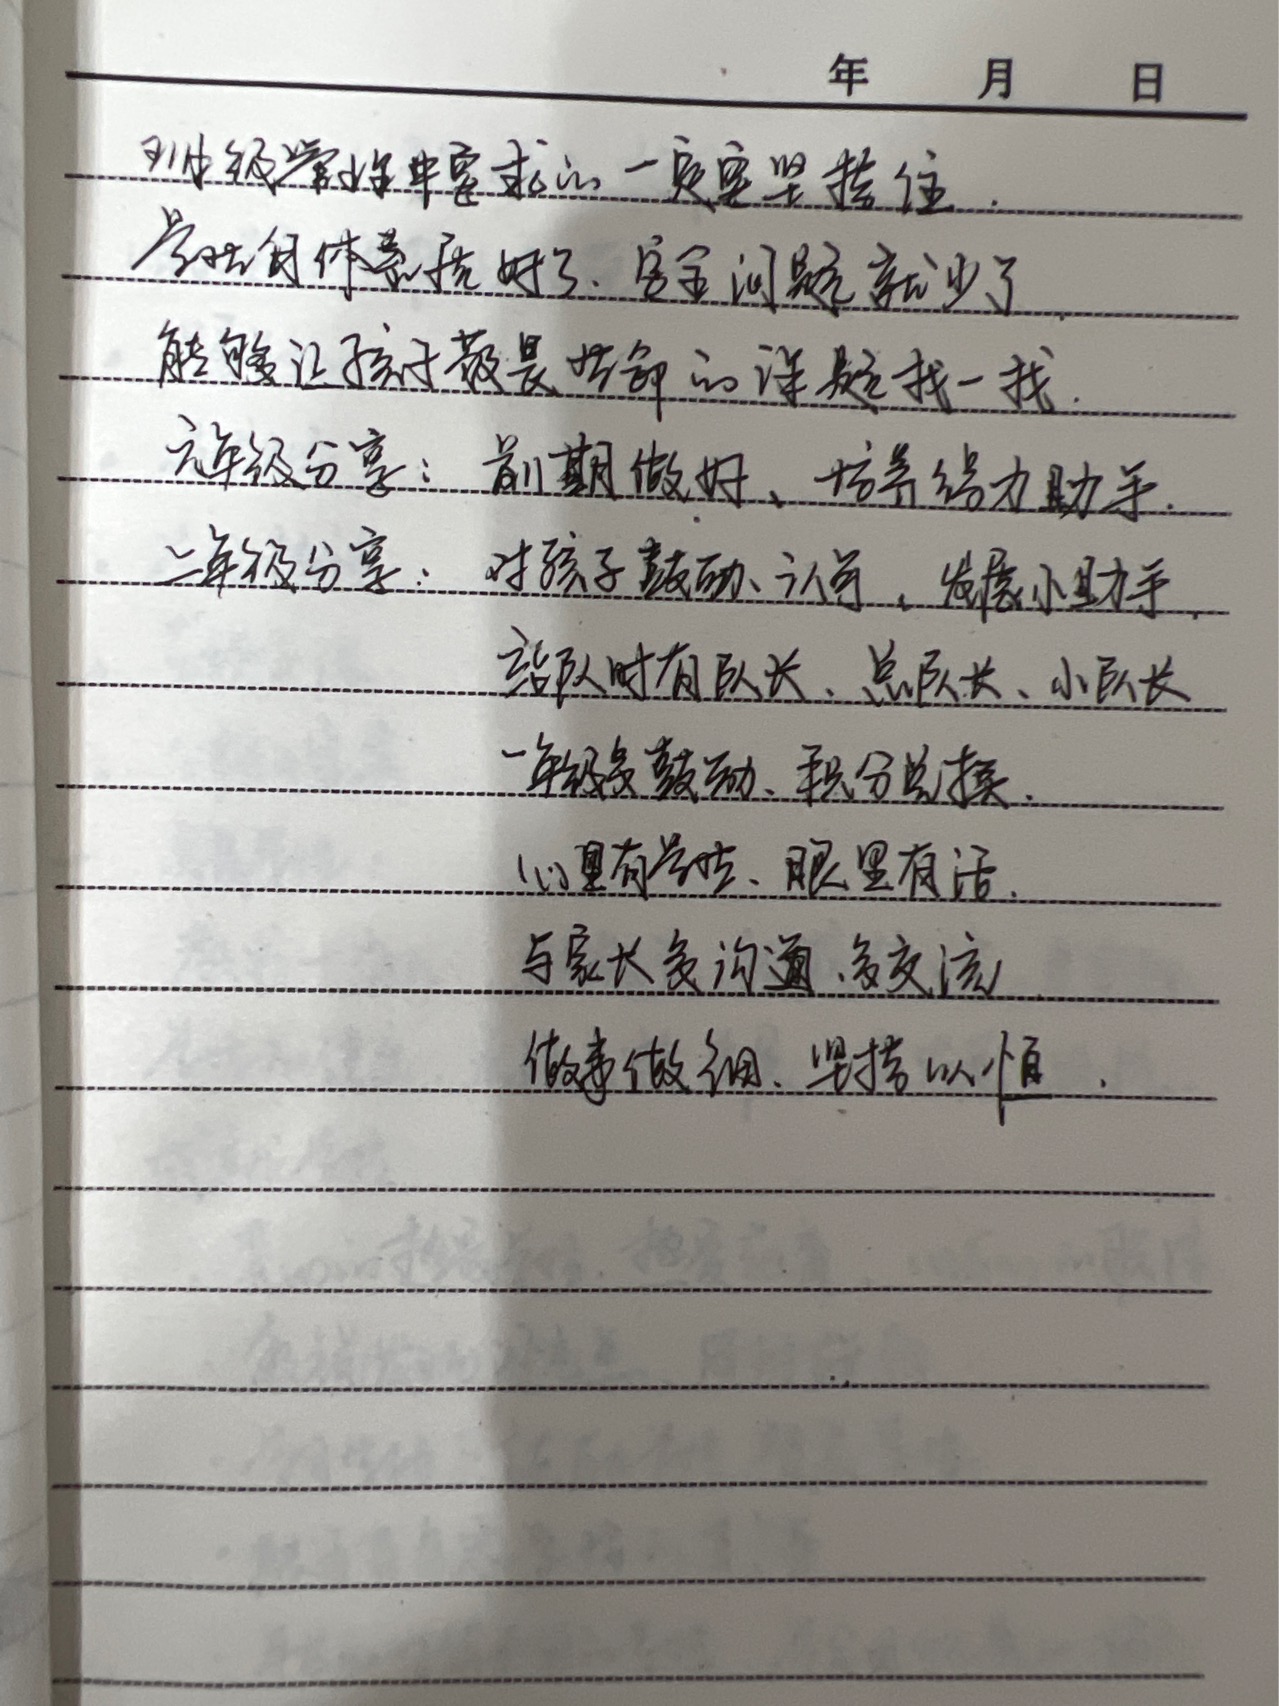 年 月 日
班级常规要求的一定要坚持住.
学生身体素质好了、安全问题就少了
能够让孩子敬畏的课题找一找.
六年级分享：前期做好、培养得力助手.
二年级分享：对孩子鼓励、认可、发展小助手
站队时有队长、总队长、小队长
一年级多鼓励、积分兑换.
心里有学生、眼里有活.
与家长多沟通、多交流
做事做细、坚持以恒.